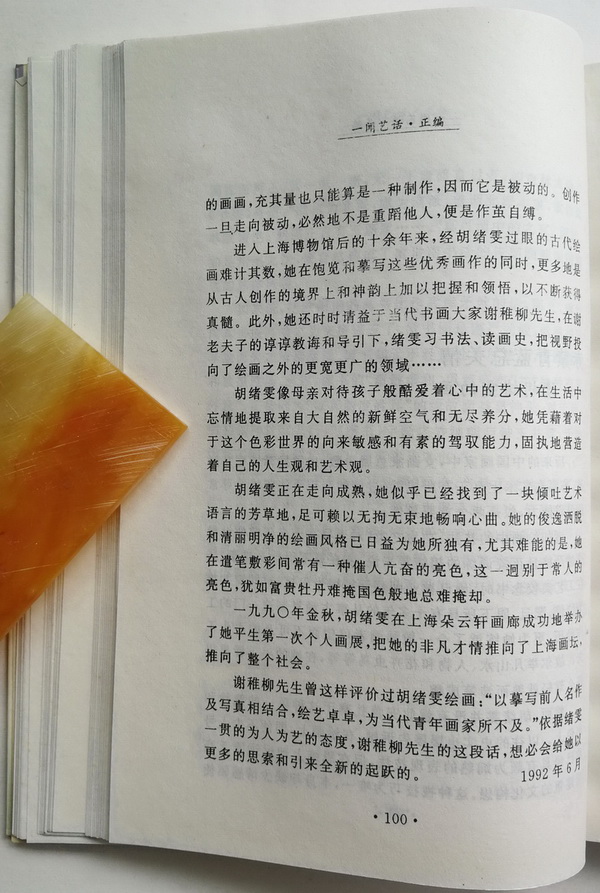 一闲艺话·正编
的画画，充其量也只能算是一种制作，因而它是被动的。创作
一旦走向被动，必然地不是重蹈他人，便是作茧自缚。
进入上海博物馆后的十余年来，经胡绪雯过眼的古代绘
画难计其数，她在饱览和摹写这些优秀画作的同时，更多地是
从古人创作的境界上和神韵上加以把握和领悟，以不断获得
真髓。此外，她还时时请益于当代书画大家谢稚柳先生，在谢
老夫子的谆谆教诲和导引下，绪雯习书法、读画史，把视野投
向了绘画之外的更宽更广的领域……
胡绪雯像母亲对待孩子般酷爱着心中的艺术，在生活中
忘情地提取来自大自然的新鲜空气和无尽养分，她凭藉着对
于这个色彩世界的向来敏感和有素的驾驭能力，固执地营造
着自己的人生观和艺术观。
胡绪雯正在走向成熟，她似乎已经找到了一块倾吐艺术
语言的芳草地，足可赖以无拘无束地畅响心曲。她的俊逸洒脱
和清丽明净的绘画风格已日益为她所独有，尤其难能的是，她
在遣笔敷彩间常有一种催人亢奋的亮色，这一迥别于常人的
亮色，犹如富贵牡丹难掩国色般地总难掩却。
一九九〇年金秋，胡绪雯在上海朵云轩画廊成功地举办
了她平生第一次个人画展，把她的非凡才情推向了上海画坛，
推向了整个社会。
谢稚柳先生曾这样评价过胡绪雯绘画：“以摹写前人名作
及写真相结合，绘艺卓卓，为当代青年画家所不及。”依据绪雯
一贯的为人为艺的态度，谢稚柳先生的这段话，想必会给她以
更多的思索和引来全新的起跃的。
1992年6月
·100·